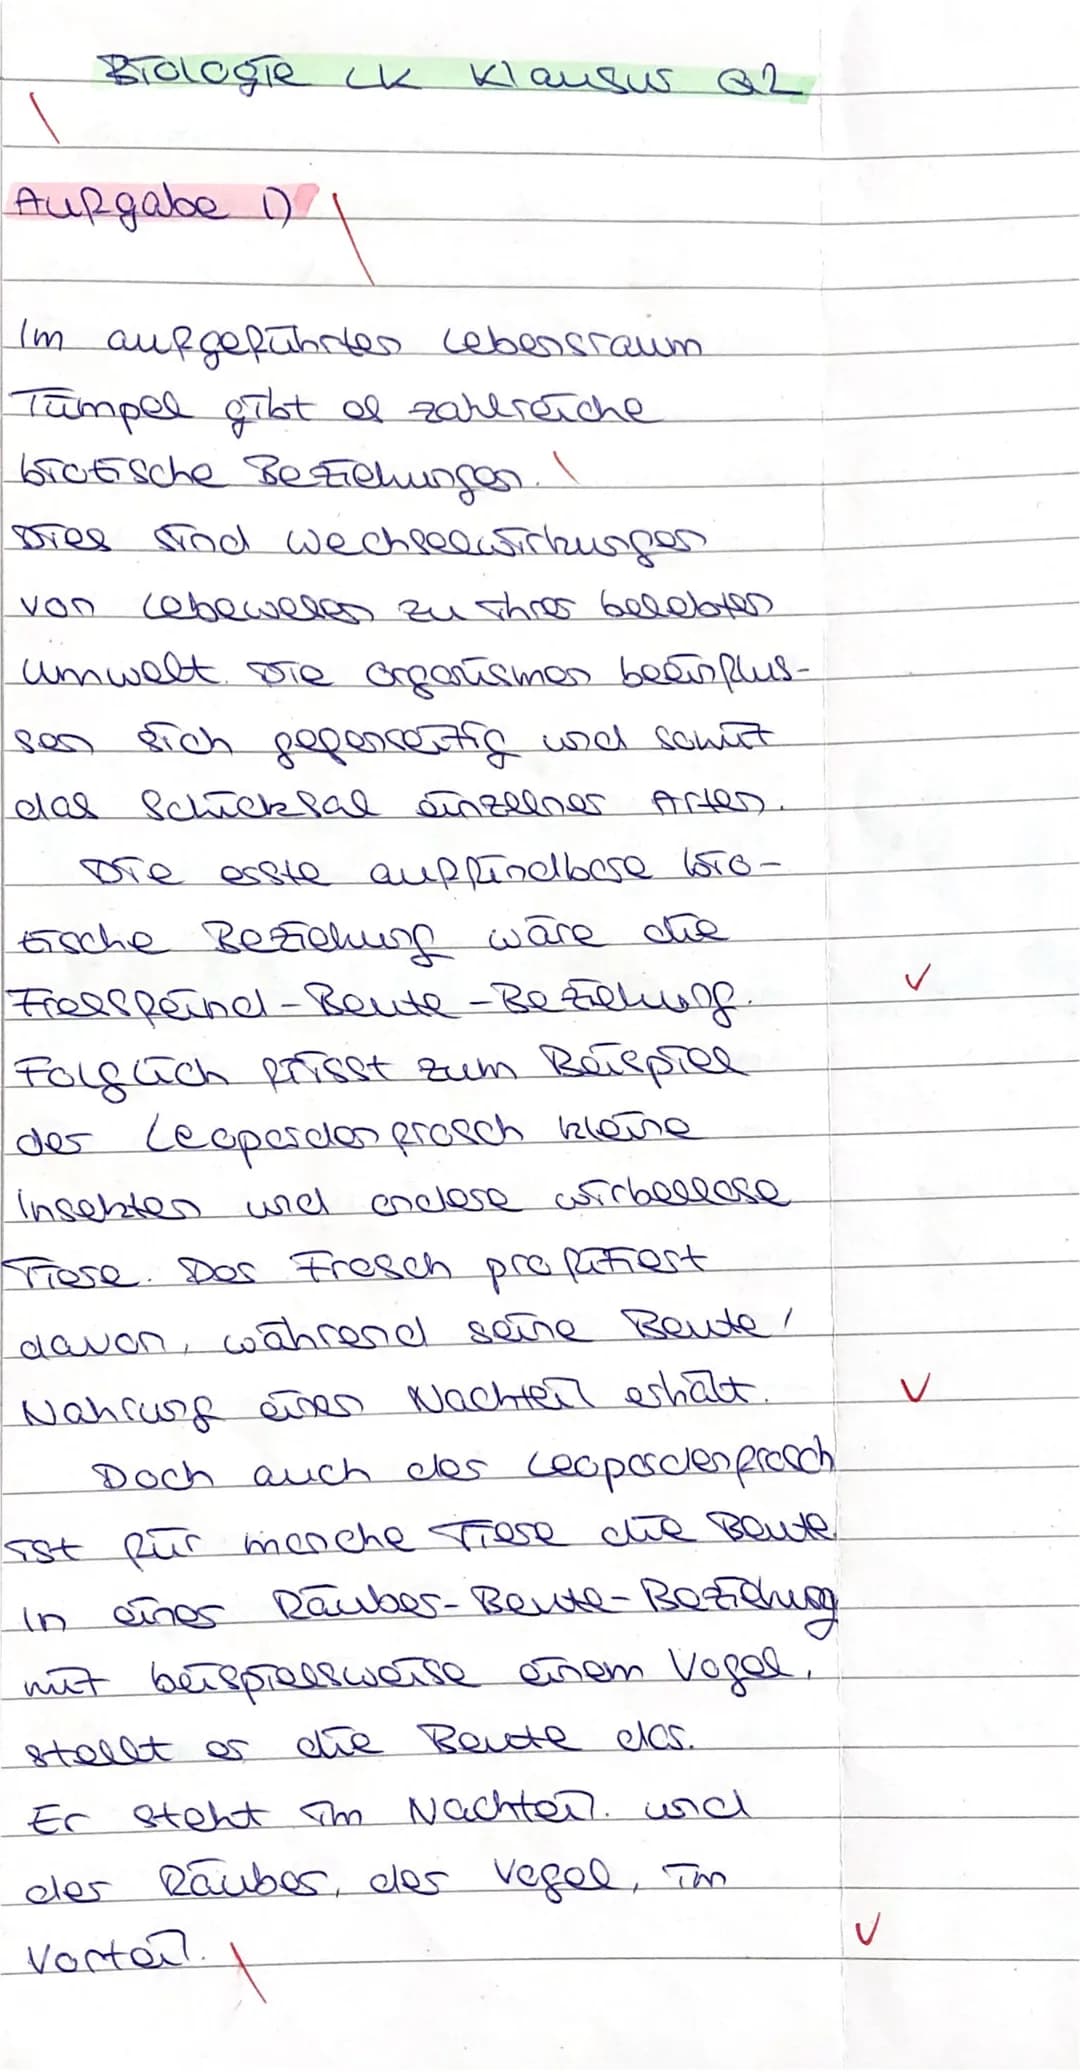 Biologie LK Klausur Q2
Aufgabe 1)
Im aufgeführten Lebensraum
Tümpel gibt es zahlreiche
biotische Beziehungen.
Dies sind Wechselwirkungen
von Lebewesen zu ihrer belebten
Umwelt. Die Organismen beeinflus-
sen sich gegenseitig und somit
das Schicksal einzelner Arten.
Die erste auffindbare bio-
tische Beziehung wäre die
Fressfeind-Beute-Beziehung.
Folglich frisst zum Beispiel
der Leopardenfrosch kleine
Insekten und andere wirbellose
Tiere. Der Frosch profitiert
davon, während seine Beute /
Nahrung einen Nachteil erhält.
Doch auch der Leopardenfrosch
ist für manche Tiere die Beute.
In einer Räuber-Beute-Beziehung
mit beispielsweise einem Vogel,
stellt er die Beute dar.
Er steht im Nachteil. und
der Räuber, der Vogel, im
Vorteil.